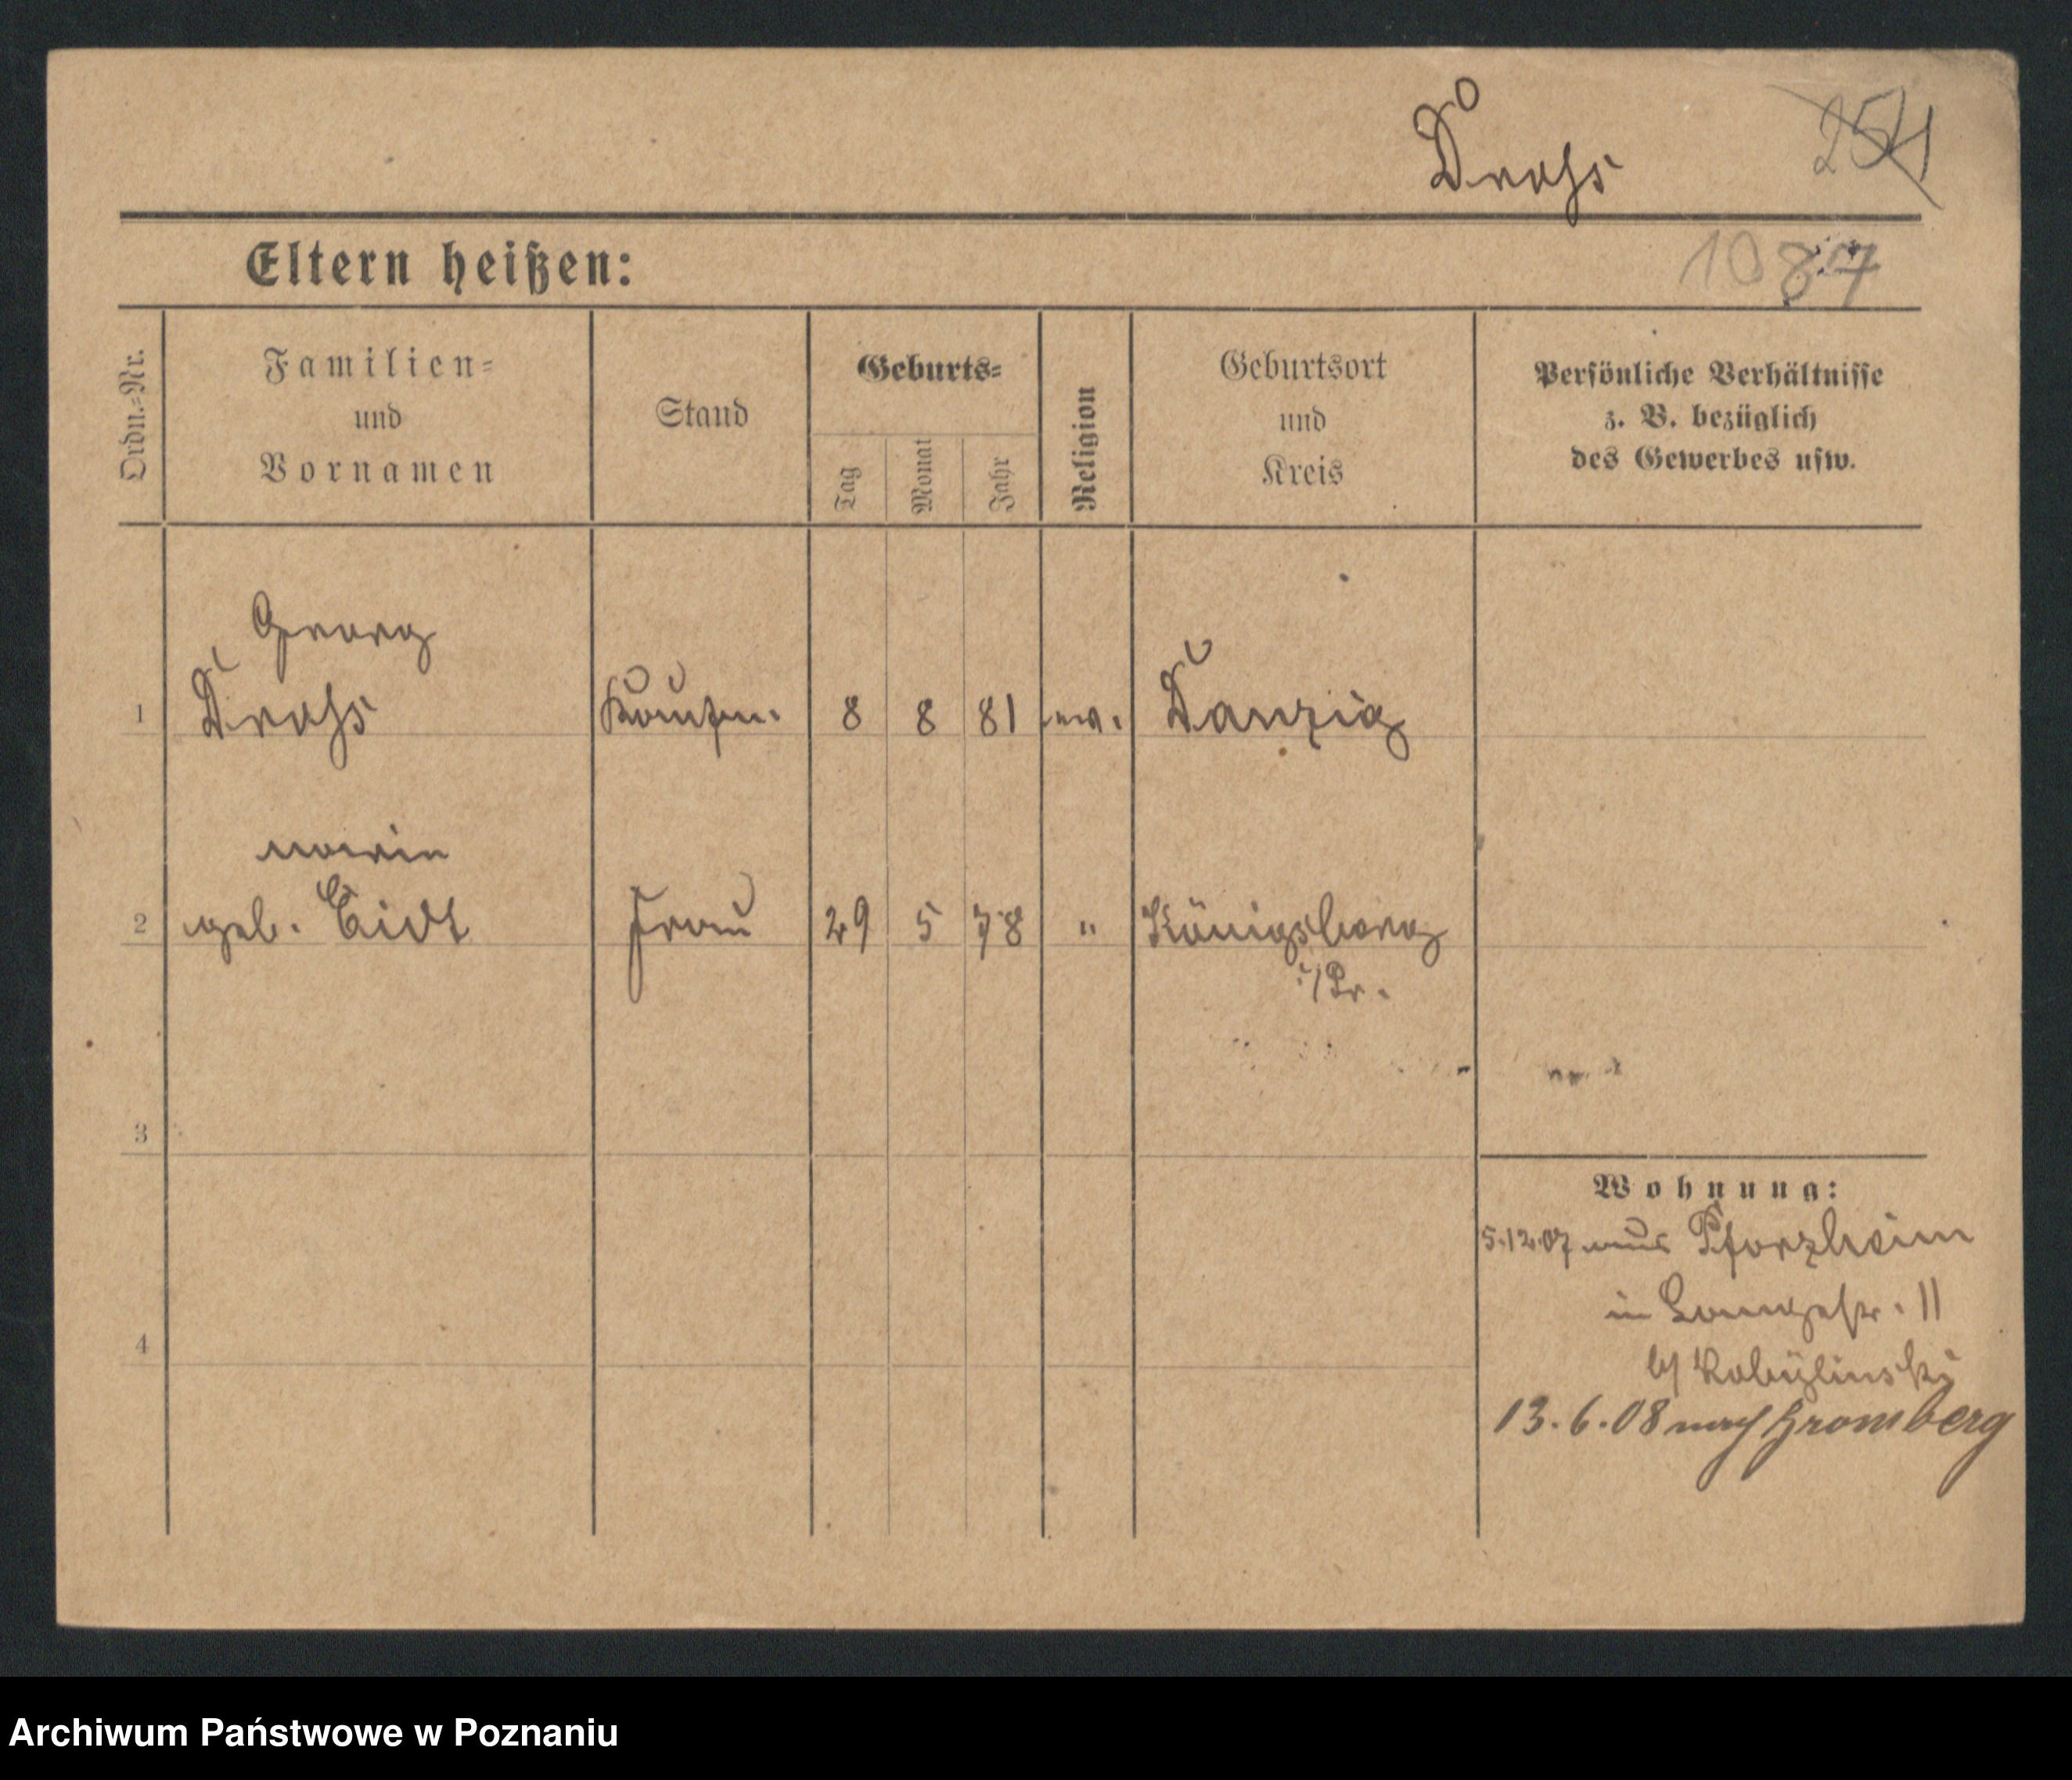 Dross
254
Eltern heißen:
1087
Ordn.=Nr.
Familien=
und
Vornamen
Stand
Geburts=
Tag
Monat
Jahr
Religion
Geburtsort
und
Kreis
Persönliche Verhältnisse
z. B. bezüglich
des Gewerbes usw.
Georg
1 Dross Kaufm. 8 8 81 ev. Danzig
Maria
2 geb. Eidt Frau 29 5 78 " Königsberg
i/Pr.
3
Wohnung:
5.12.07 aus Pforzheim
in Langestr. 11
b/ Kobylinski
4
13.6.08 nach Bromberg
Archiwum Państwowe w Poznaniu